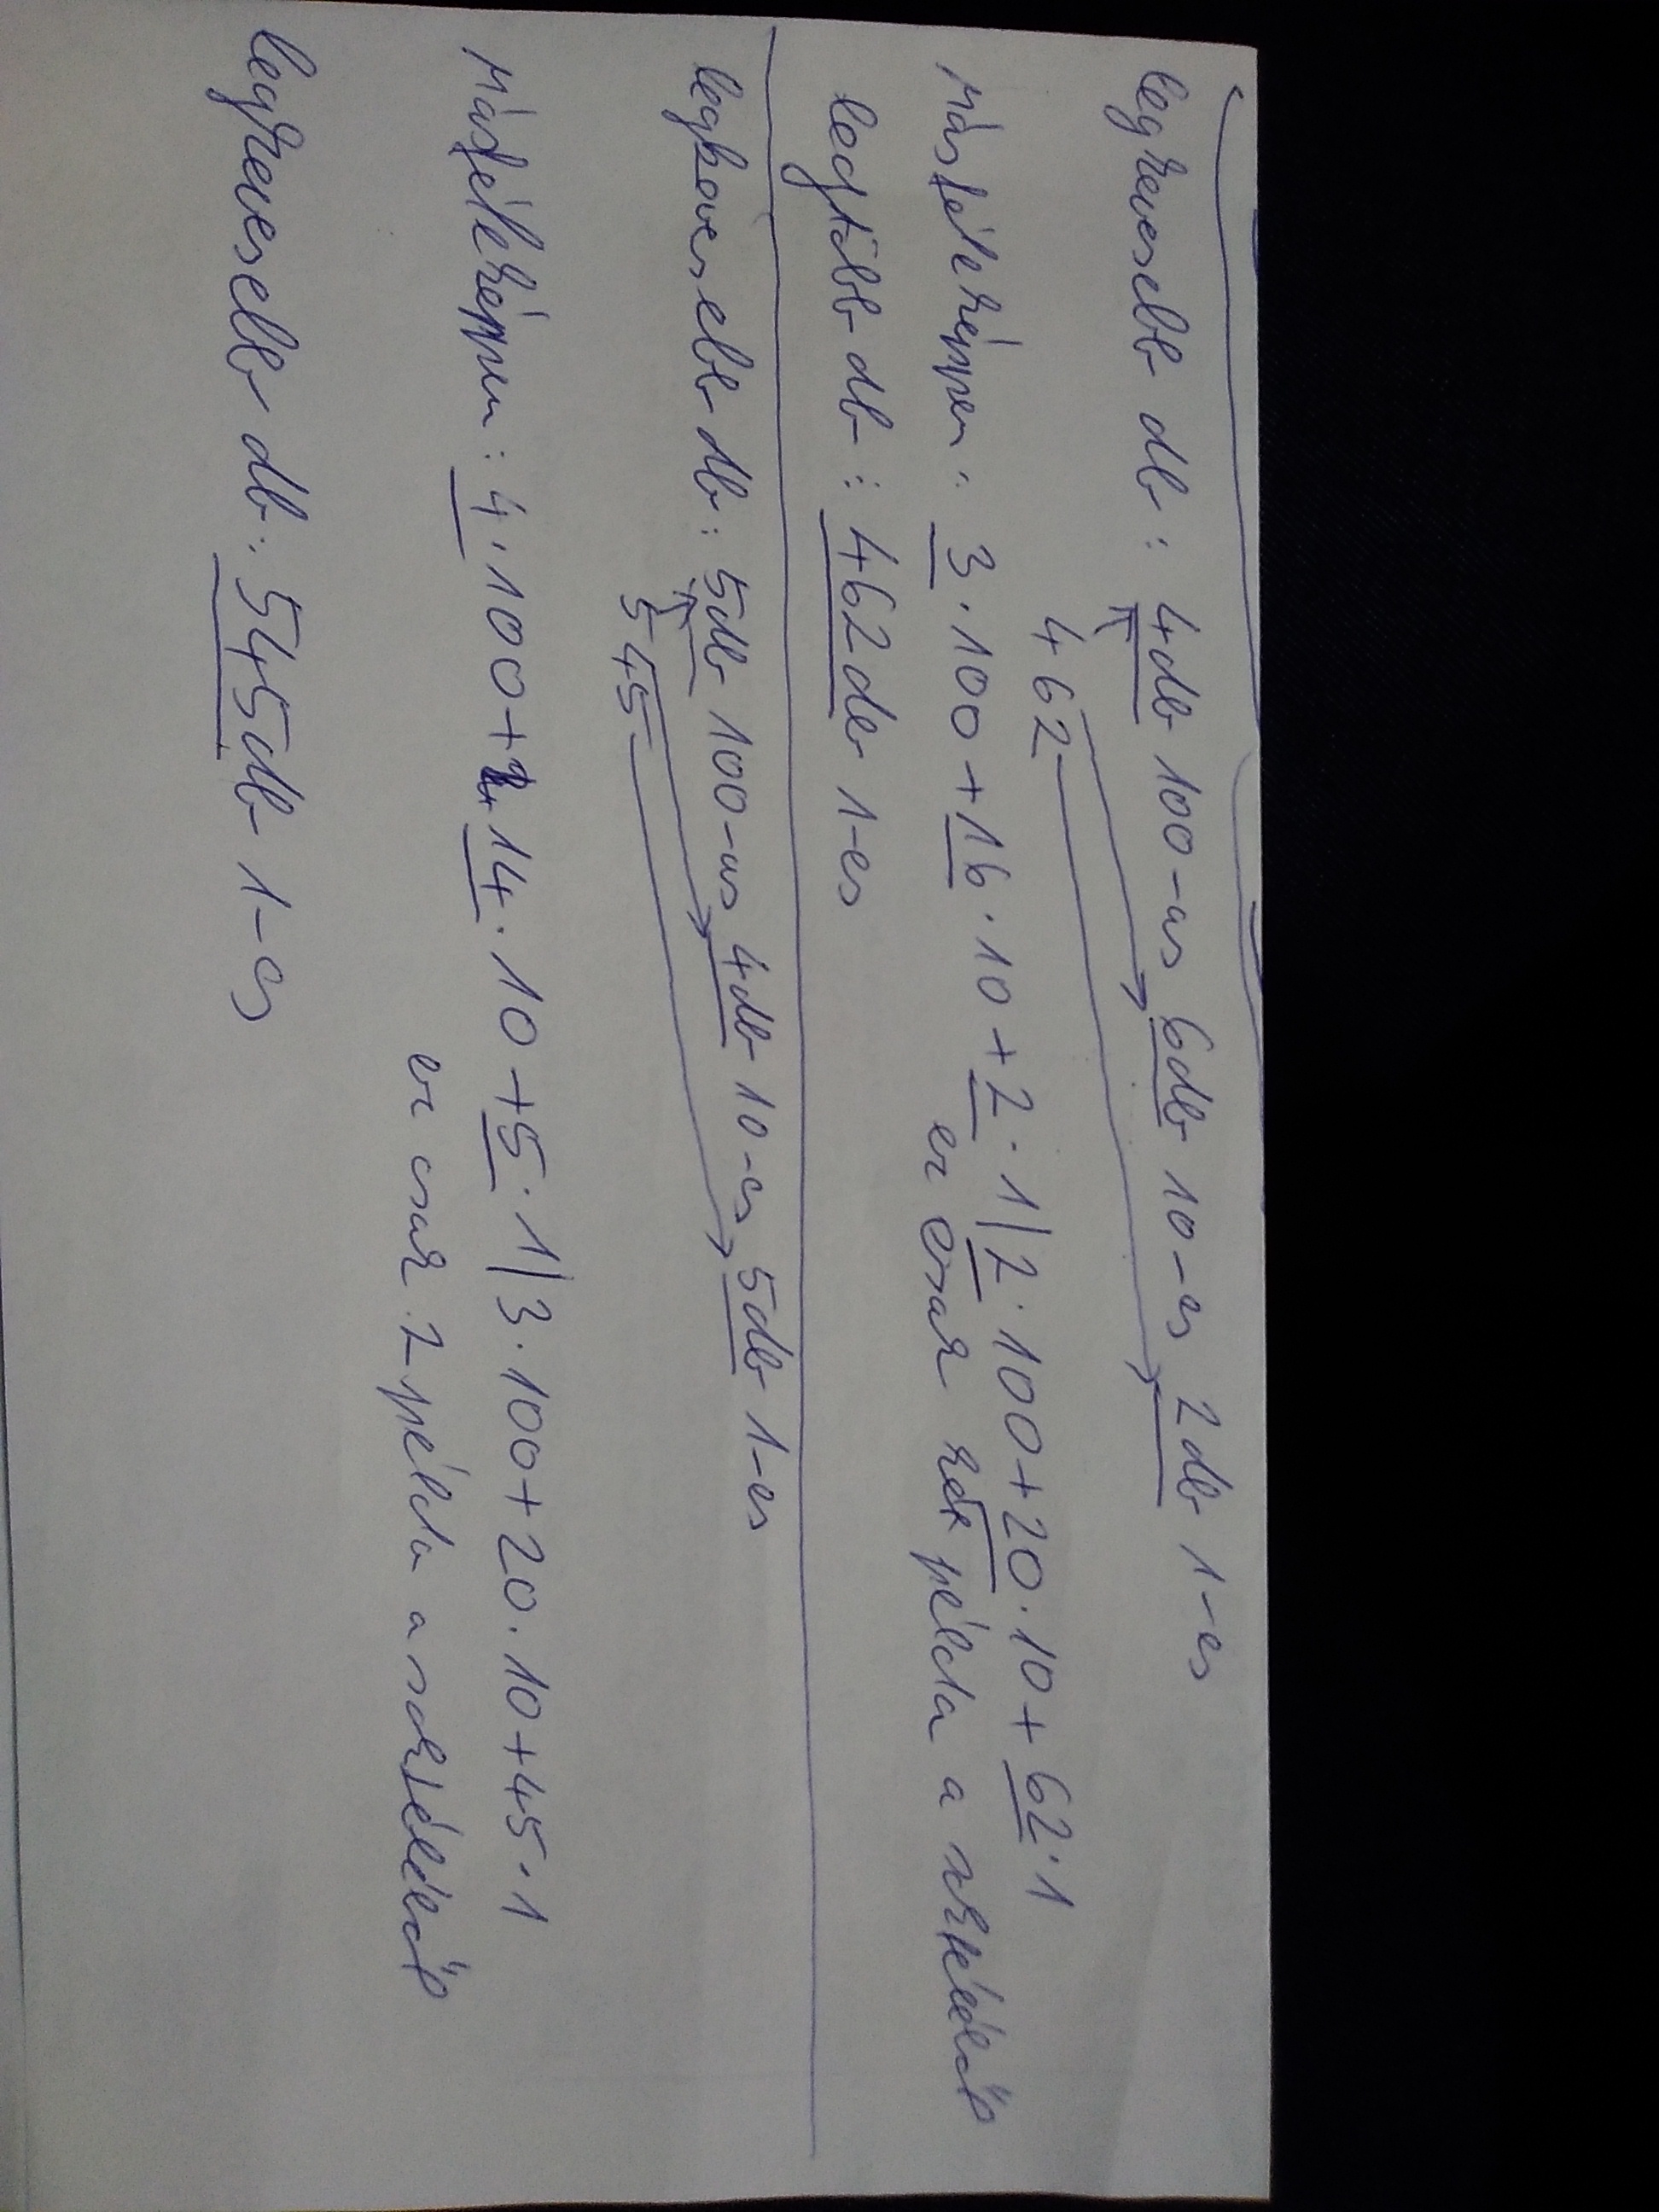 legkevesebb db: 4db 100-as 6db 10-es 2db 1-es
462
Másféleképpen: 3·100+16·10+2·1|2·100+20·10+62·1
ez csak két példa a sokféleből
legtöbb db: 462db 1-es
legkevesebb db: 5db 100-as 4db 10-es 5db 1-es
545
Másféleképpen: 4·100+14·10+5·1|3·100+20·10+45·1
ez csak 2 példa a sokféléből
legkevesebb db: 545db 1-es